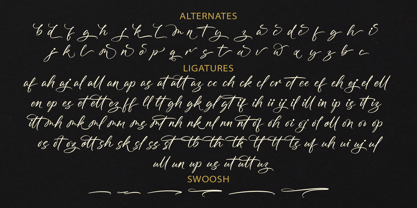 ALTERNATES
b d f g h j k L m n t y z a w d e f g h i
j k l m n o p q r s t u v w x y z b c
LIGATURES
af ah aj al all an ap as at att az cc ch ck cl cr ct ee ef eh ej el ell
en ep es et ett ez ff ll tt gh gk gl gt if ih ii ij il ill in ip is it iz
itt mh mk ml mm ms mt nh nk nl nn nt of oh oi oj ol oll on oo op
os ot oz ott sh sk sl ss st tb th tk tl tt ts uf uh ui uj ul
ull un up us ut utt uz
SWOOSH